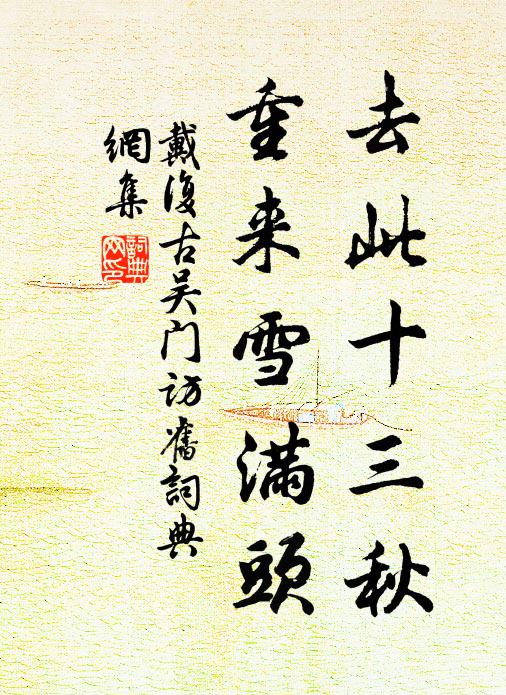 去此十三秋
重来雪滿頭
戴復古吴门访舊詞典
網集
詞典
网印